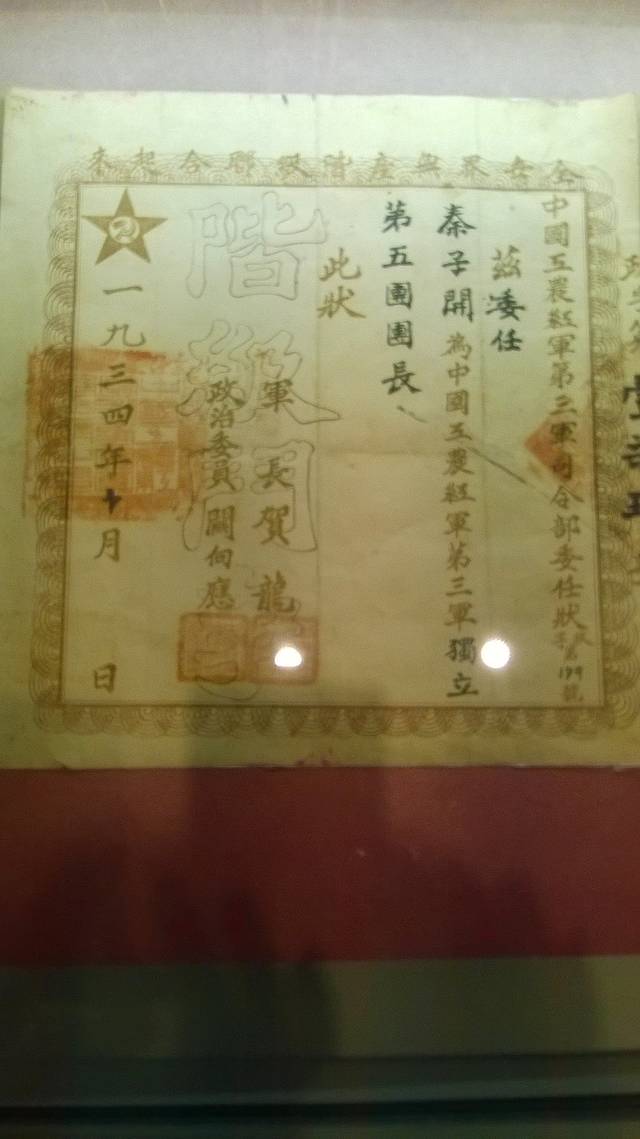 全世界無產階級聯合起來
中國工農紅軍第三軍司令部委任狀
199號
茲委任
秦子開為中國工農紅軍第三軍獨立
第五團團長
此狀
軍長賀龍
政治委員關向應
一九三四年十月 日
階級